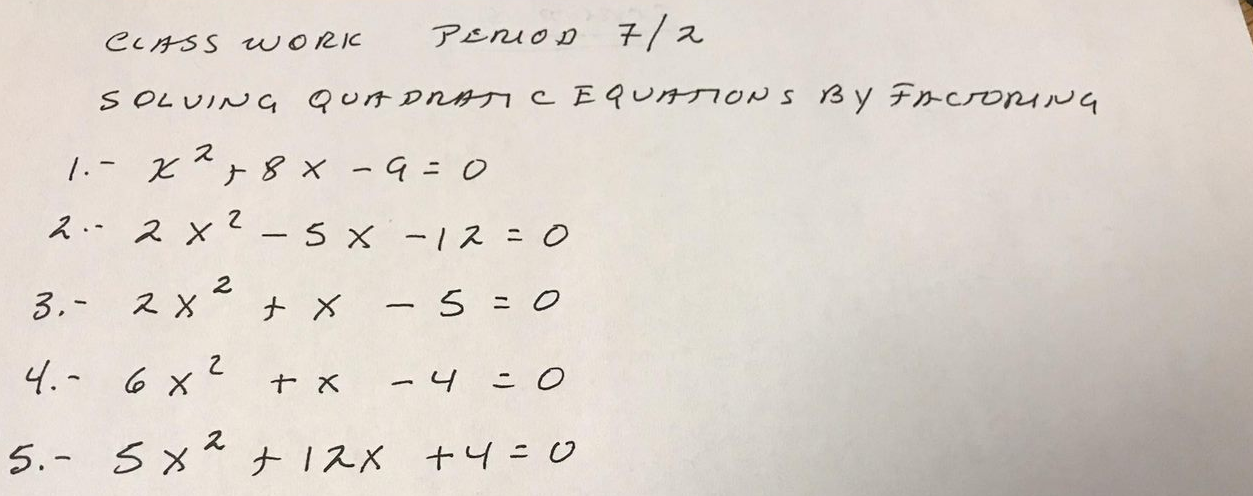 CLASS WORK PERIOD 7/2
SOLVING QUADRATIC EQUATIONS BY FACTORING
1.- x² + 8x - 9 = 0
2.- 2x² - 5x - 12 = 0
3.- 2x² + x - 5 = 0
4.- 6x² + x - 4 = 0
5.- 5x² + 12x + 4 = 0